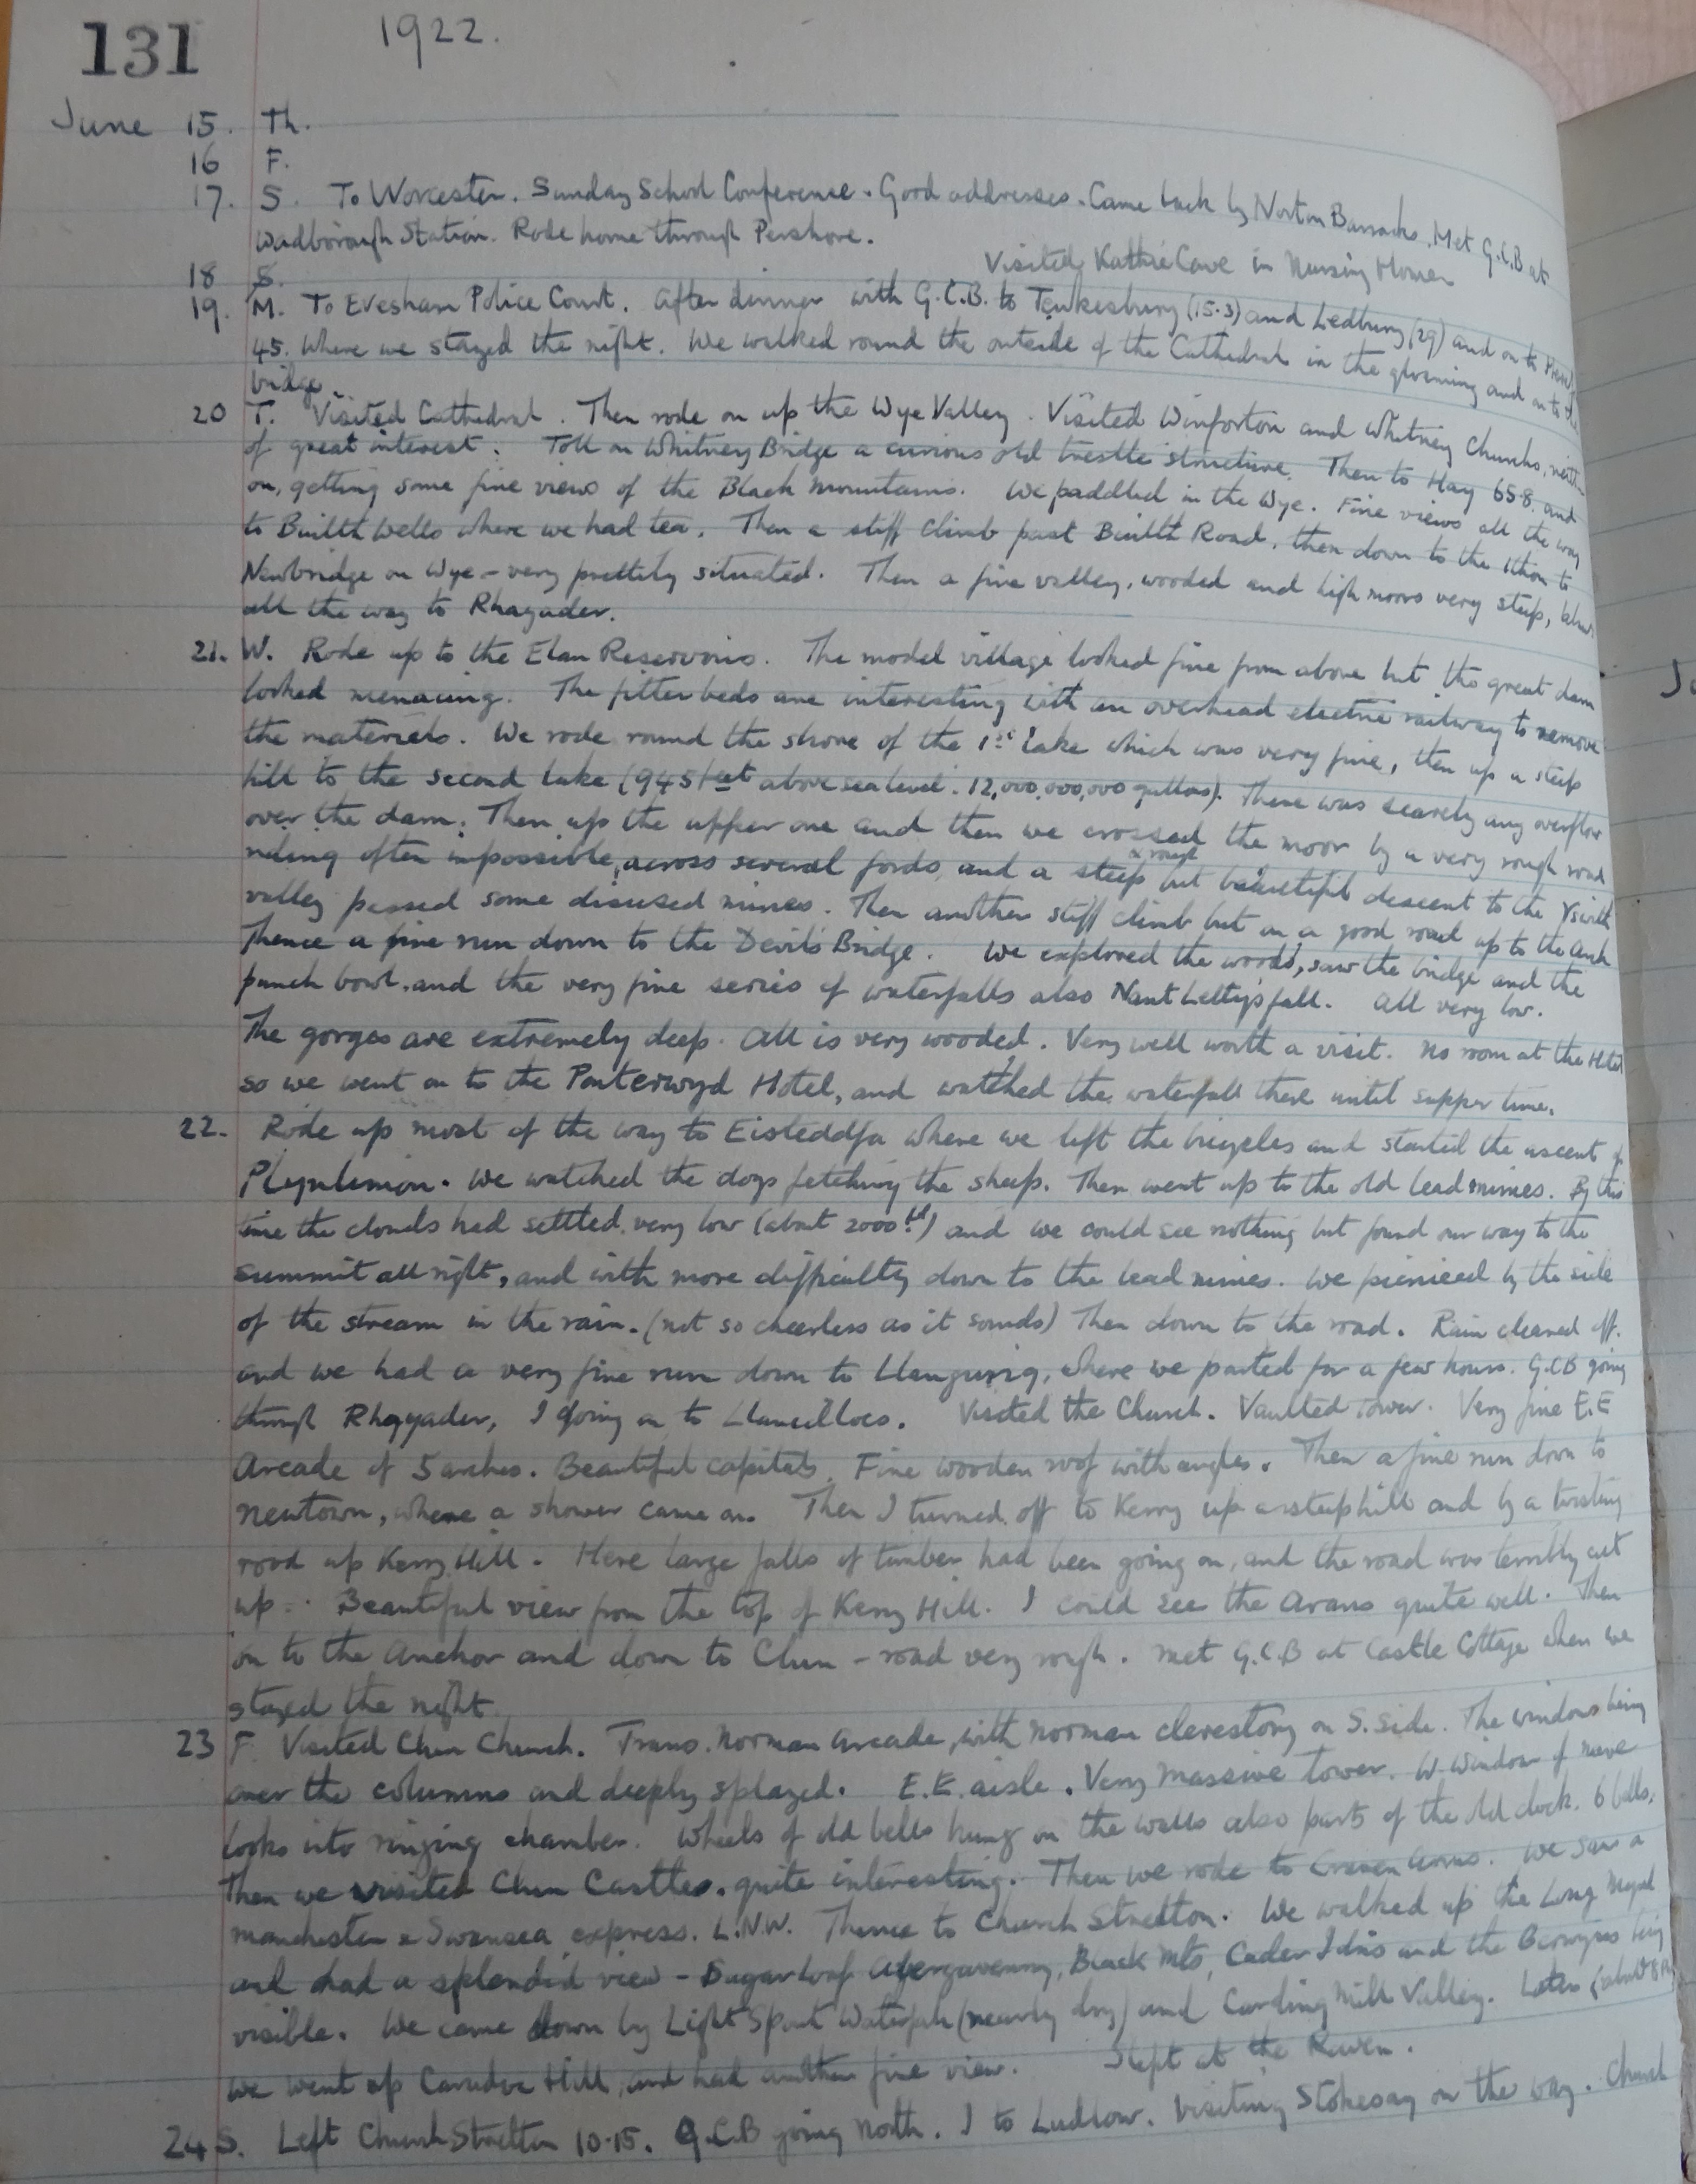 131
1922.
June 15. Th.
16 F.
17. S. To Worcester. Sunday School Conference. Good addresses. Came back by Norton Barracks. Met G.C.B at
Wadborough Station. Rode home through Pershore.
Visited Kathie Cave in Nursing Home
18 S.
19. M. To Evesham Police Court. After dinner with G.C.B. to Tewkesbury (15.3) and Ledbury (29) and on to
45. Where we stayed the night. We walked round the outside of the Cathedral in the gloaming and on to the
bridge.
20 T. Visited Cathedral. Then rode on up the Wye Valley. Visited Winforton and Whitney Churches, neither
of great interest. Toll on Whitney Bridge a curious old trestle structure. Then to Hay 65.8. and
on, getting some fine views of the Black Mountains. We paddled in the Wye. Fine views all the way
to Builth Wells where we had tea. Then a stiff climb past Builth Road, then down to the Ithon to
Newbridge on Wye - very prettily situated. Then a fine valley, wooded and high moors very steep,
all the way to Rhayader.
21. W. Rode up to the Elan Reservoirs. The model village looked fine from above but the great dam
looked menacing. The filter beds are interesting with an overhead electric railway to remove
the materials. We rode round the shore of the 1st lake which was very fine, then up a steep
hill to the second lake (945 feet above sea level. 12,000,000,000 gallons). There was scarcely any overflow
over the dam. Then up the upper one and then we crossed the moor by a very rough road
riding often impossible, across several fords, and a steep & rough but beautiful descent to the Ystwith
valley passed some disused mines. Then another stiff climb but on a good road up to the Arch
Thence a fine run down to the Devil's Bridge. We explored the woods, saw the bridge and the
punch bowl, and the very fine series of waterfalls also Nant Lettys fall. All very low.
The gorges are extremely deep. All is very wooded. Very well worth a visit. No room at the Hotel
so we went on to the Ponterwyd Hotel, and watched the waterfall there until supper time.
22. Rode up most of the way to Eisteddfa where we left the bicycles and started the ascent of
Plynlimon. We watched the dogs fetching the sheep. Then went up to the old lead mines. By this
time the clouds had settled very low (about 2000 ft) and we could see nothing but found our way to the
summit all right, and with more difficulty down to the lead mines. We picniced by the side
of the stream in the rain. (not so cheerless as it sounds) Then down to the road. Rain cleared off.
and we had a very fine run down to Llangurig, where we parted for a few hours. G.C.B going
through Rhayader, I going on to Llanidloes. Visited the Church. Vaulted Tower. Very fine E.E
Arcade of 5 arches. Beautiful capitals. Fine wooden roof with angles. Then a fine run down to
Newtown, where a shower came on. Then I turned off to Kerry up a steep hill and by a twisting
road up Kerry Hill. Here large falls of timber had been going on, and the road was terribly cut
up. Beautiful view from the top of Kerry Hill. I could see the Arans quite well. Then
on to the Anchor and down to Clun - road very rough. Met G.C.B at Castle Cottage where we
stayed the night.
23 F. Visited Clun Church. Trans. Norman Arcade, with Norman clerestory on S. Side. The windows being
over the columns and deeply splayed. E.E. aisle. Very massive tower. W. Window of nave
looks into ringing chamber. Wheels of old bells hung on the walls also parts of the old clock. 6 bells.
Then we visited Clun Castle, quite interesting. Then we rode to Craven Arms. We saw a
Manchester & Swansea express. L.N.W. Thence to Church Stretton. We walked up the Long Mynd
and had a splendid view - Sugar Loaf Abergavenny, Black Mts, Cader Idris and the Berwyns being
visible. We came down by Light Spout Waterfall (nearly dry) and Carding Mill Valley. Later (about 8 PM)
we went up Caradoc Hill, and had another fine view. Slept at the Raven.
24 S. Left Church Stretton 10.15. G.C.B going North. I to Ludlow. Visiting Stokesay on the way. Church